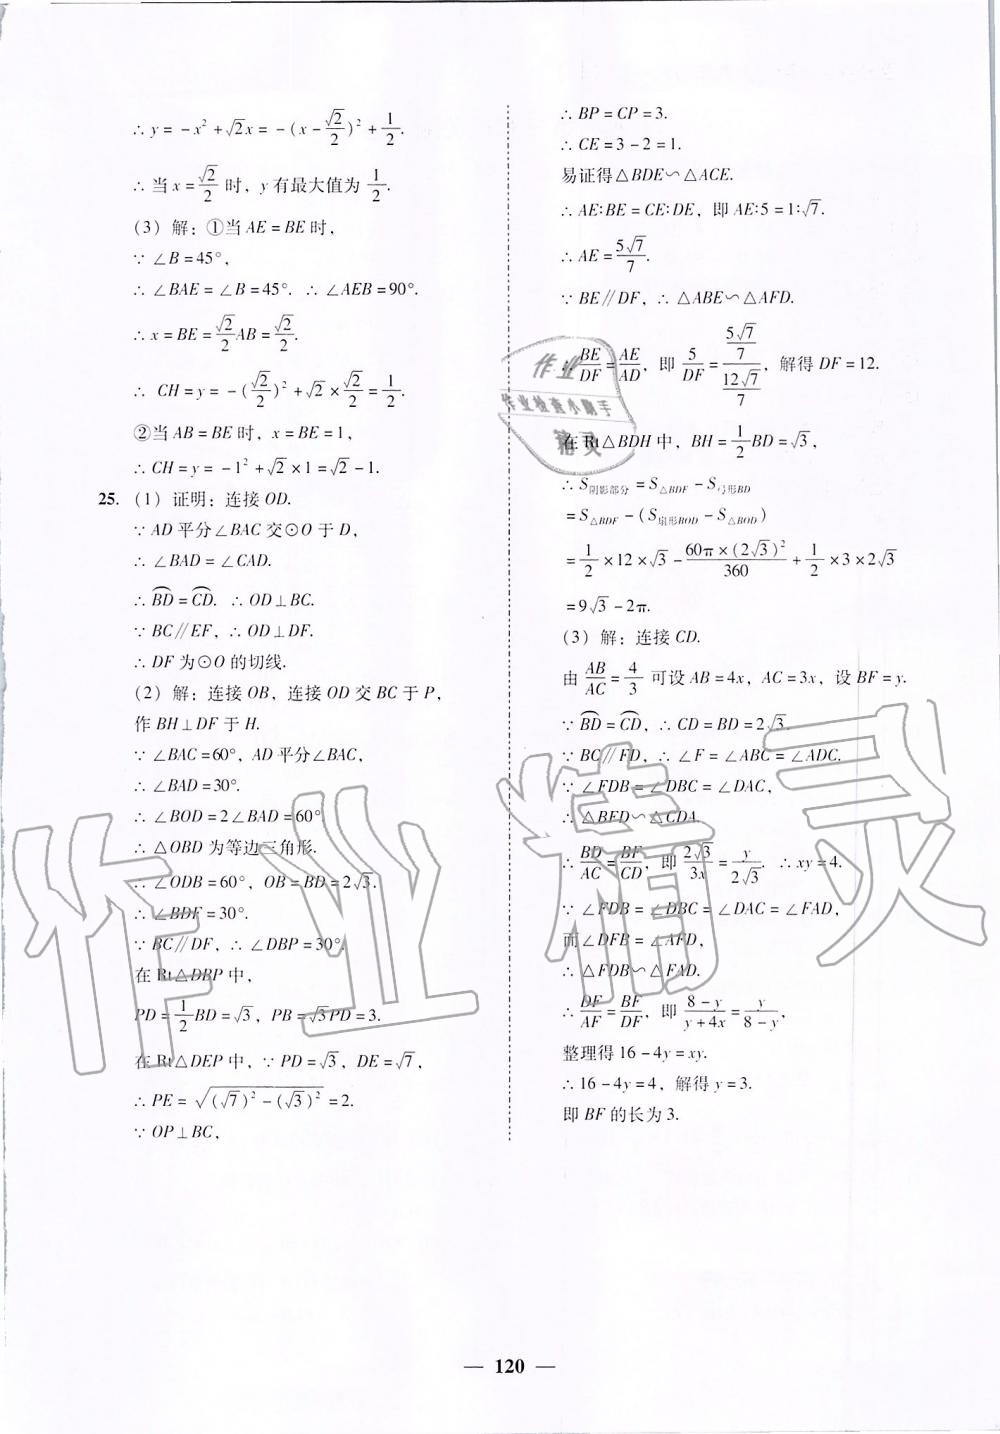 ∴ y = －x² + √2x = －(x－√2/2)² + 1/2.
∴ 当 x = √2/2 时，y 有最大值为 1/2.
(3) 解：①当 AE = BE 时，
∵ ∠B = 45°，
∴ ∠BAE = ∠B = 45°. ∴ ∠AEB = 90°.
∴ x = BE = √2/2 AB = √2/2.
∴ CH = y = －(√2/2)² + √2 × √2/2 = 1/2.
②当 AB = BE 时，x = BE = 1，
∴ CH = y = －1² + √2 × 1 = √2 － 1.
25. (1) 证明：连接 OD.
∵ AD 平分 ∠BAC 交⊙O 于 D，
∴ ∠BAD = ∠CAD.
∴ BD⌒ = CD⌒. ∴ OD⊥BC.
∵ BC∥EF，∴ OD⊥DF.
∴ DF 为⊙O 的切线.
(2) 解：连接 OB，连接 OD 交 BC 于 P，
作 BH⊥DF 于 H.
∵ ∠BAC = 60°，AD 平分∠BAC，
∴ ∠BAD = 30°.
∴ ∠BOD = 2∠BAD = 60°.
∴ △OBD 为等边三角形.
∴ ∠ODB = 60°，OB = BD = 2√3.
∴ ∠BDF = 30°.
∵ BC∥DF，∴ ∠DBP = 30°.
在 Rt△DBP 中，
PD = 1/2 BD = √3，PB = √3PD = 3.
在 Rt△DEP 中，∵ PD = √3，DE = √7，
∴ PE = √((√7)² － (√3)²) = 2.
∵ OP⊥BC，
∴ BP = CP = 3.
∴ CE = 3 － 2 = 1.
易证得△BDE∽△ACE.
∴ AE∶BE = CE∶DE，即 AE∶5 = 1∶√7.
∴ AE = 5√7/7.
∵ BE∥DF，∴ △ABE∽△AFD.
∴ BE/DF = AE/AD，即 5/DF = (5√7/7)/(12√7/7)，解得 DF = 12.
在 Rt△BDH 中，BH = 1/2 BD = √3，
∴ S阴影部分 = S△BDF － S弓形BD
= S△BDF － (S扇形BOD － S△BOD)
= 1/2 × 12 × √3 － 60π × (2√3)²/360 + 1/2 × 3 × 2√3
= 9√3 － 2π.
(3) 解：连接 CD.
由 AB/AC = 4/3 可设 AB = 4x，AC = 3x，设 BF = y.
∵ BD⌒ = CD⌒，∴ CD = BD = 2√3.
∵ BC∥FD，∴ ∠F = ∠ABC = ∠ADC.
∵ ∠FDB = ∠DBC = ∠DAC，
∴ △BFD∽△CDA.
∴ BD/AC = BF/CD，即 2√3/3x = y/2√3. ∴ xy = 4.
∵ ∠FDB = ∠DBC = ∠DAC = ∠FAD，
而∠DFB = ∠AFD，
∴ △FDB∽△FAD.
∴ DF/AF = BF/DF，即 (8－y)/(y+4x) = y/(8－y)，
整理得 16 － 4y = xy.
∴ 16 － 4y = 4，解得 y = 3.
即 BF 的长为 3.
作业
作业检查小助手
精灵
作业精灵
— 120 —